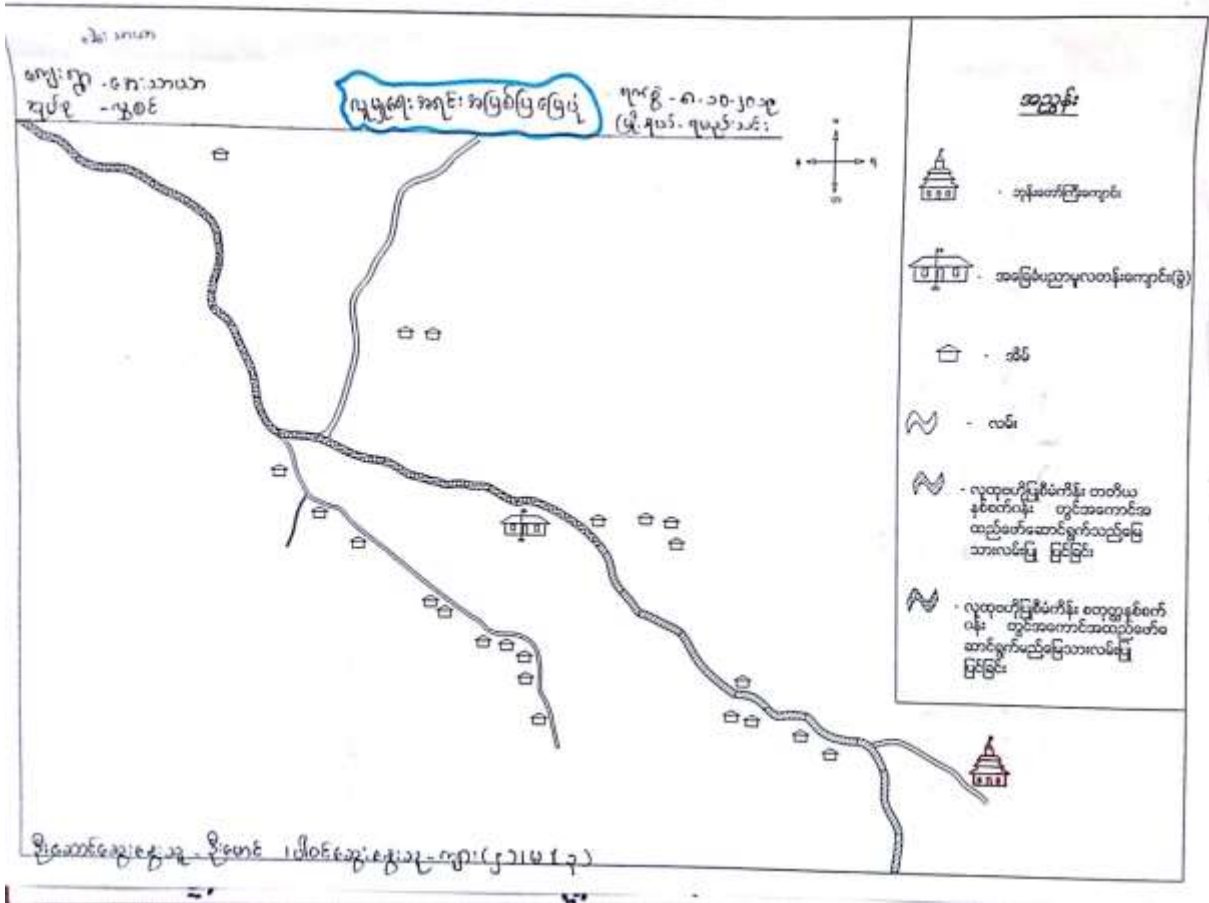 အေးသာယာ
ကျေးရွာ - အေးသာယာ
အုပ်စု - လှစင်
လူမှုရေးအရင်းအမြစ်ပြမြေပုံ
ရက်စွဲ - ၈-၁၀-၂၀၁၉
မြို့နယ် - ရမည်းသင်း
အညွှန်း
- ဘုန်းတော်ကြီးကျောင်း
- အခြေခံပညာမူလတန်းကျောင်း(ခွဲ)
- အိမ်
- လမ်း
- လူထုဗဟိုပြုစီမံကိန်း တတိယ
နှစ်စက်ဝန်း တွင်အကောင်အ
ထည်ဖော်ဆောင်ရွက်သည့်မြေ
သားလမ်းပြု ပြင်ခြင်း
- လူထုဗဟိုပြုစီမံကိန်း စတုတ္ထနှစ်စက်
ဝန်း တွင်အကောင်အထည်ဖော်ဆ
ောင်ရွက်မည့်မြေသားလမ်းပြု
ပြင်ခြင်း
ဦးဆောင်ဆွေးနွေးသူ - ဦးမောင် ၊ ပါဝင်ဆွေးနွေးသူ - ကျား(၄)၊ မ(၃)